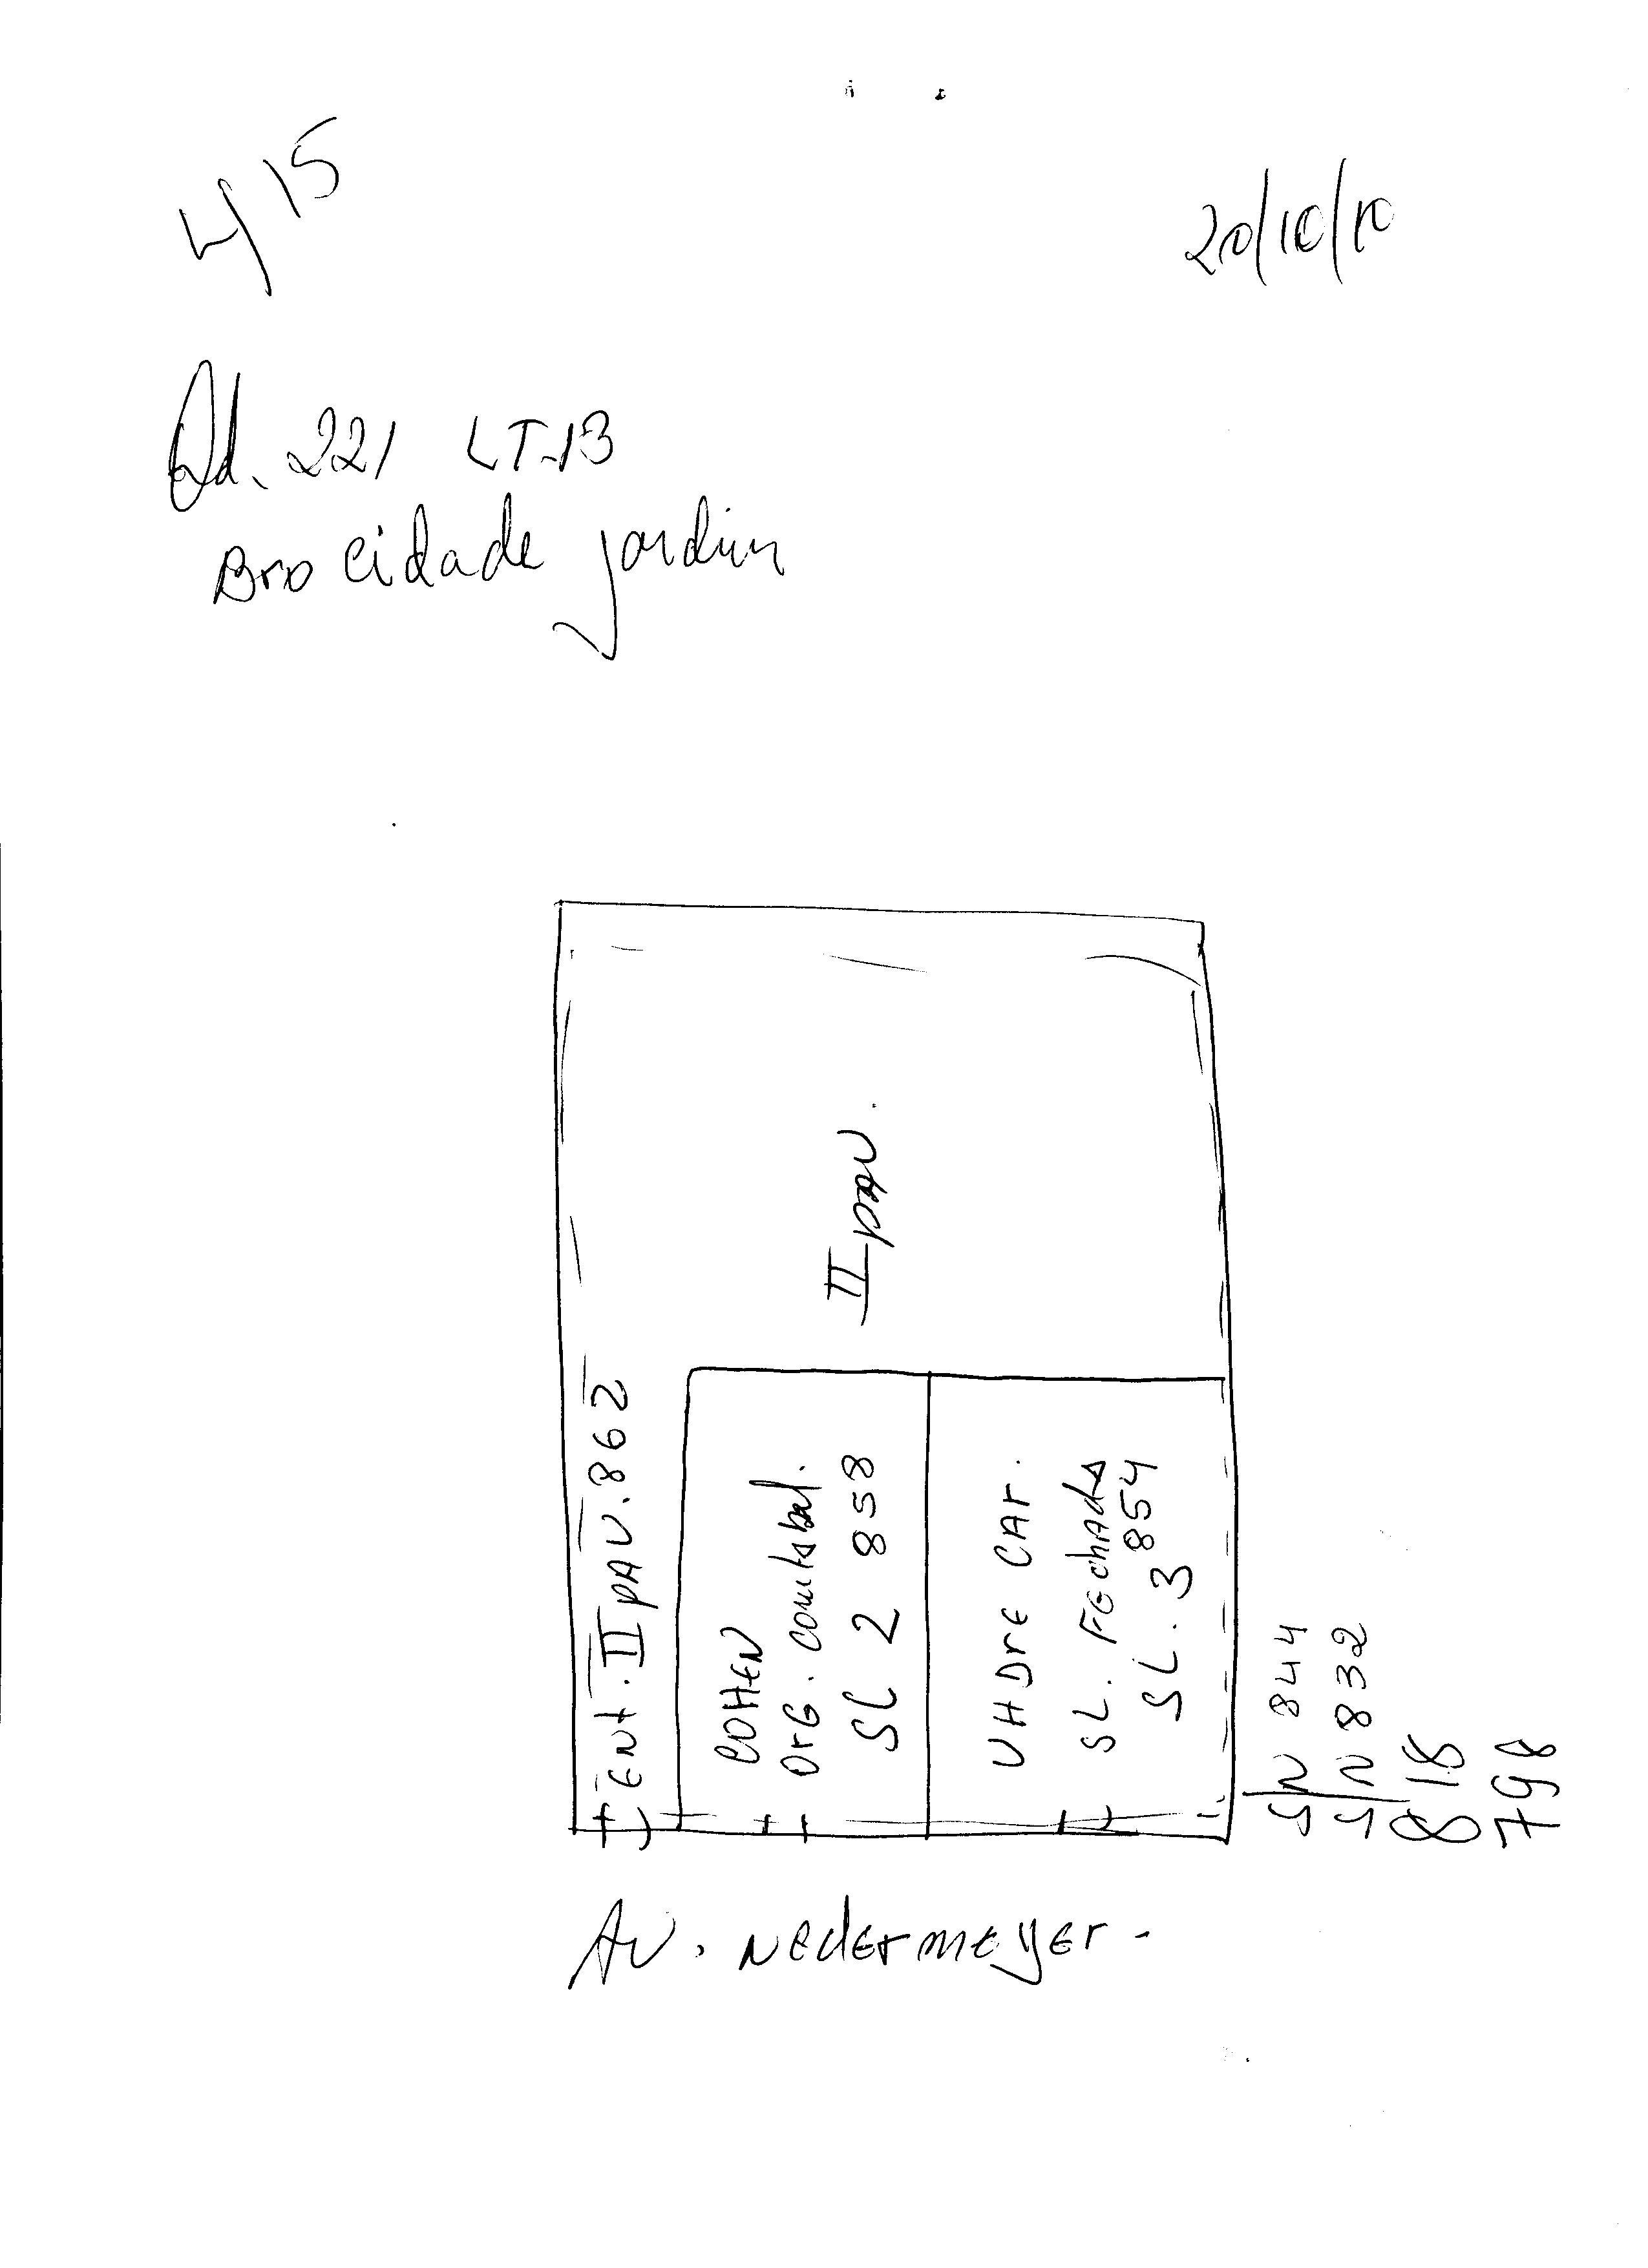 415
20/10/10
Qd. 221 LT-13
Bro cidade jardim
II pav.
Ent. II pav. 862
COHEN
OrG. contabil.
SL 2 858
VHDrE CAr.
SL. FEchAdA
854
SL. 3
SN 844
SN 832
818
798
Av. Nedermeyer.